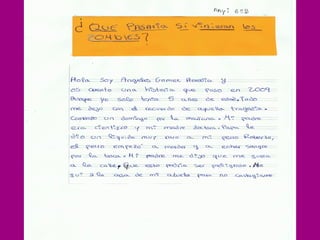 Anyi 6ºB
¿QUE PASARIA SI VINIERAN LOS
ZOMBIES?
Hola Soy Angeles Gomez Heredia y
os cuento una historia que paso en 2009
Aunque yo solo tenia 5 años de edad. Todo
me dejo con el recuerdo de aquella tragedia.
Cuando un domingo por la mañana. Mi padre
era cientifico y mi madre doctora. Papa le
dio un liquido muy raro a mi perro Roberto,
el perro empezó a morder y a echar sangre
por la boca. Mi padre me dijo que me fuera
a la calle, que esto podria ser peligroso. Me
fui a la casa de mi abuela para no contagiarme